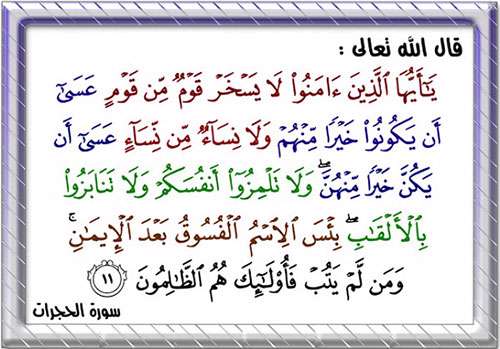 قال الله تعالى :
يَـٰٓأَيُّهَا ٱلَّذِينَ ءَامَنُوا۟ لَا يَسْخَرْ قَوْمٌ مِّن قَوْمٍ عَسَىٰٓ
أَن يَكُونُوا۟ خَيْرًا مِّنْهُمْ وَلَا نِسَآءٌ مِّن نِّسَآءٍ عَسَىٰٓ أَن
يَكُنَّ خَيْرًا مِّنْهُنَّ ۖ وَلَا تَلْمِزُوٓا۟ أَنفُسَكُمْ وَلَا تَنَابَزُوا۟
بِٱلْأَلْقَـٰبِ ۖ بِئْسَ ٱلِٱسْمُ ٱلْفُسُوقُ بَعْدَ ٱلْإِيمَـٰنِ ۚ
وَمَن لَّمْ يَتُبْ فَأُو۟لَـٰٓئِكَ هُمُ ٱلظَّـٰلِمُونَ ١١
سورة الحجرات